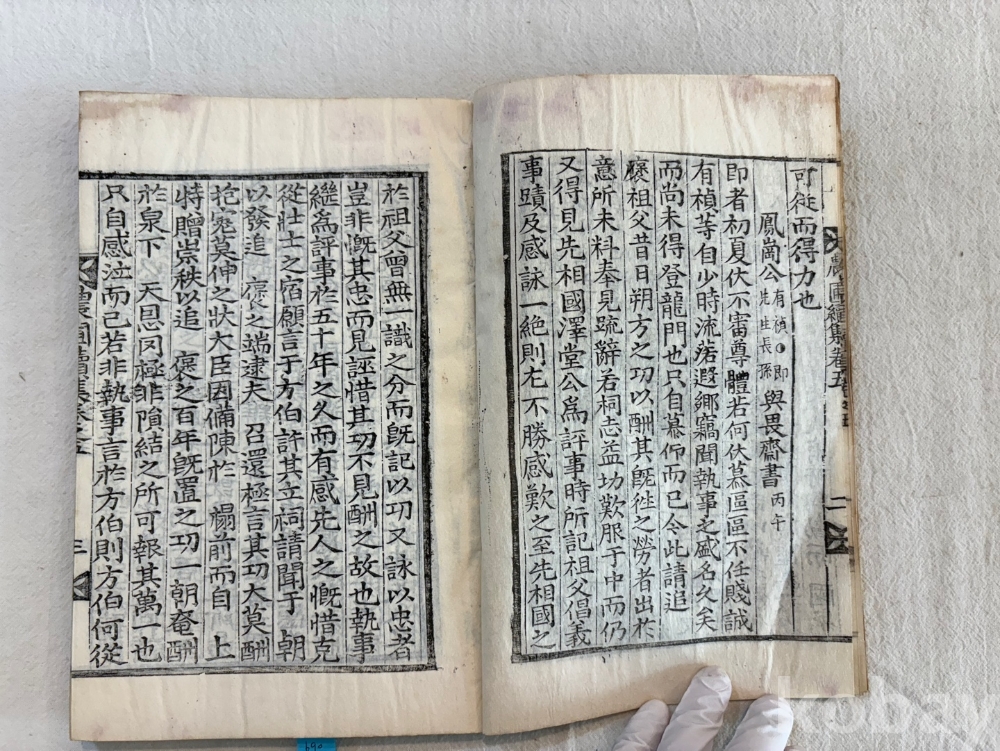 可從而得力也
鳳崗公有禎即先生長孫與畏齋書丙午
即者初夏伏不審尊體若何伏慕區區不任賤誠
有禎等自少時流落遐鄉竊聞執事之盛名久矣
而尚未得登龍門也只自慕仰而已今此請追
褒祖父昔日朔方之功以酬其旣徃之勞者出於
意所未料奉見疏辭若祠志益切歎服于中而仍
又得見先相國澤堂公爲評事時所記祖父倡義
事蹟及感詠一絶則尤不勝感歎之至先相國之
農圃續集卷之五
二
於祖父曾無一識之分而旣記以功又詠以忠者
豈非慨其忠而見誣惜其功不見酬之故也執事
繼爲評事於五十年之久而有感先人之慨惜克
從壯士之宿願言于方伯許其立祠請聞于 朝
以發追 褒之端逮夫 召還極言其功大莫酬
抱寃莫伸之狀大臣因備陳於 榻前而自 上
特贈崇秩以追 褒之百年旣置之功一朝奄酬
於泉下 天恩罔極非隕結之所可報其萬一也
只自感泣而已若非執事言於方伯則方伯何從
農圃續集卷之五
三
kobay